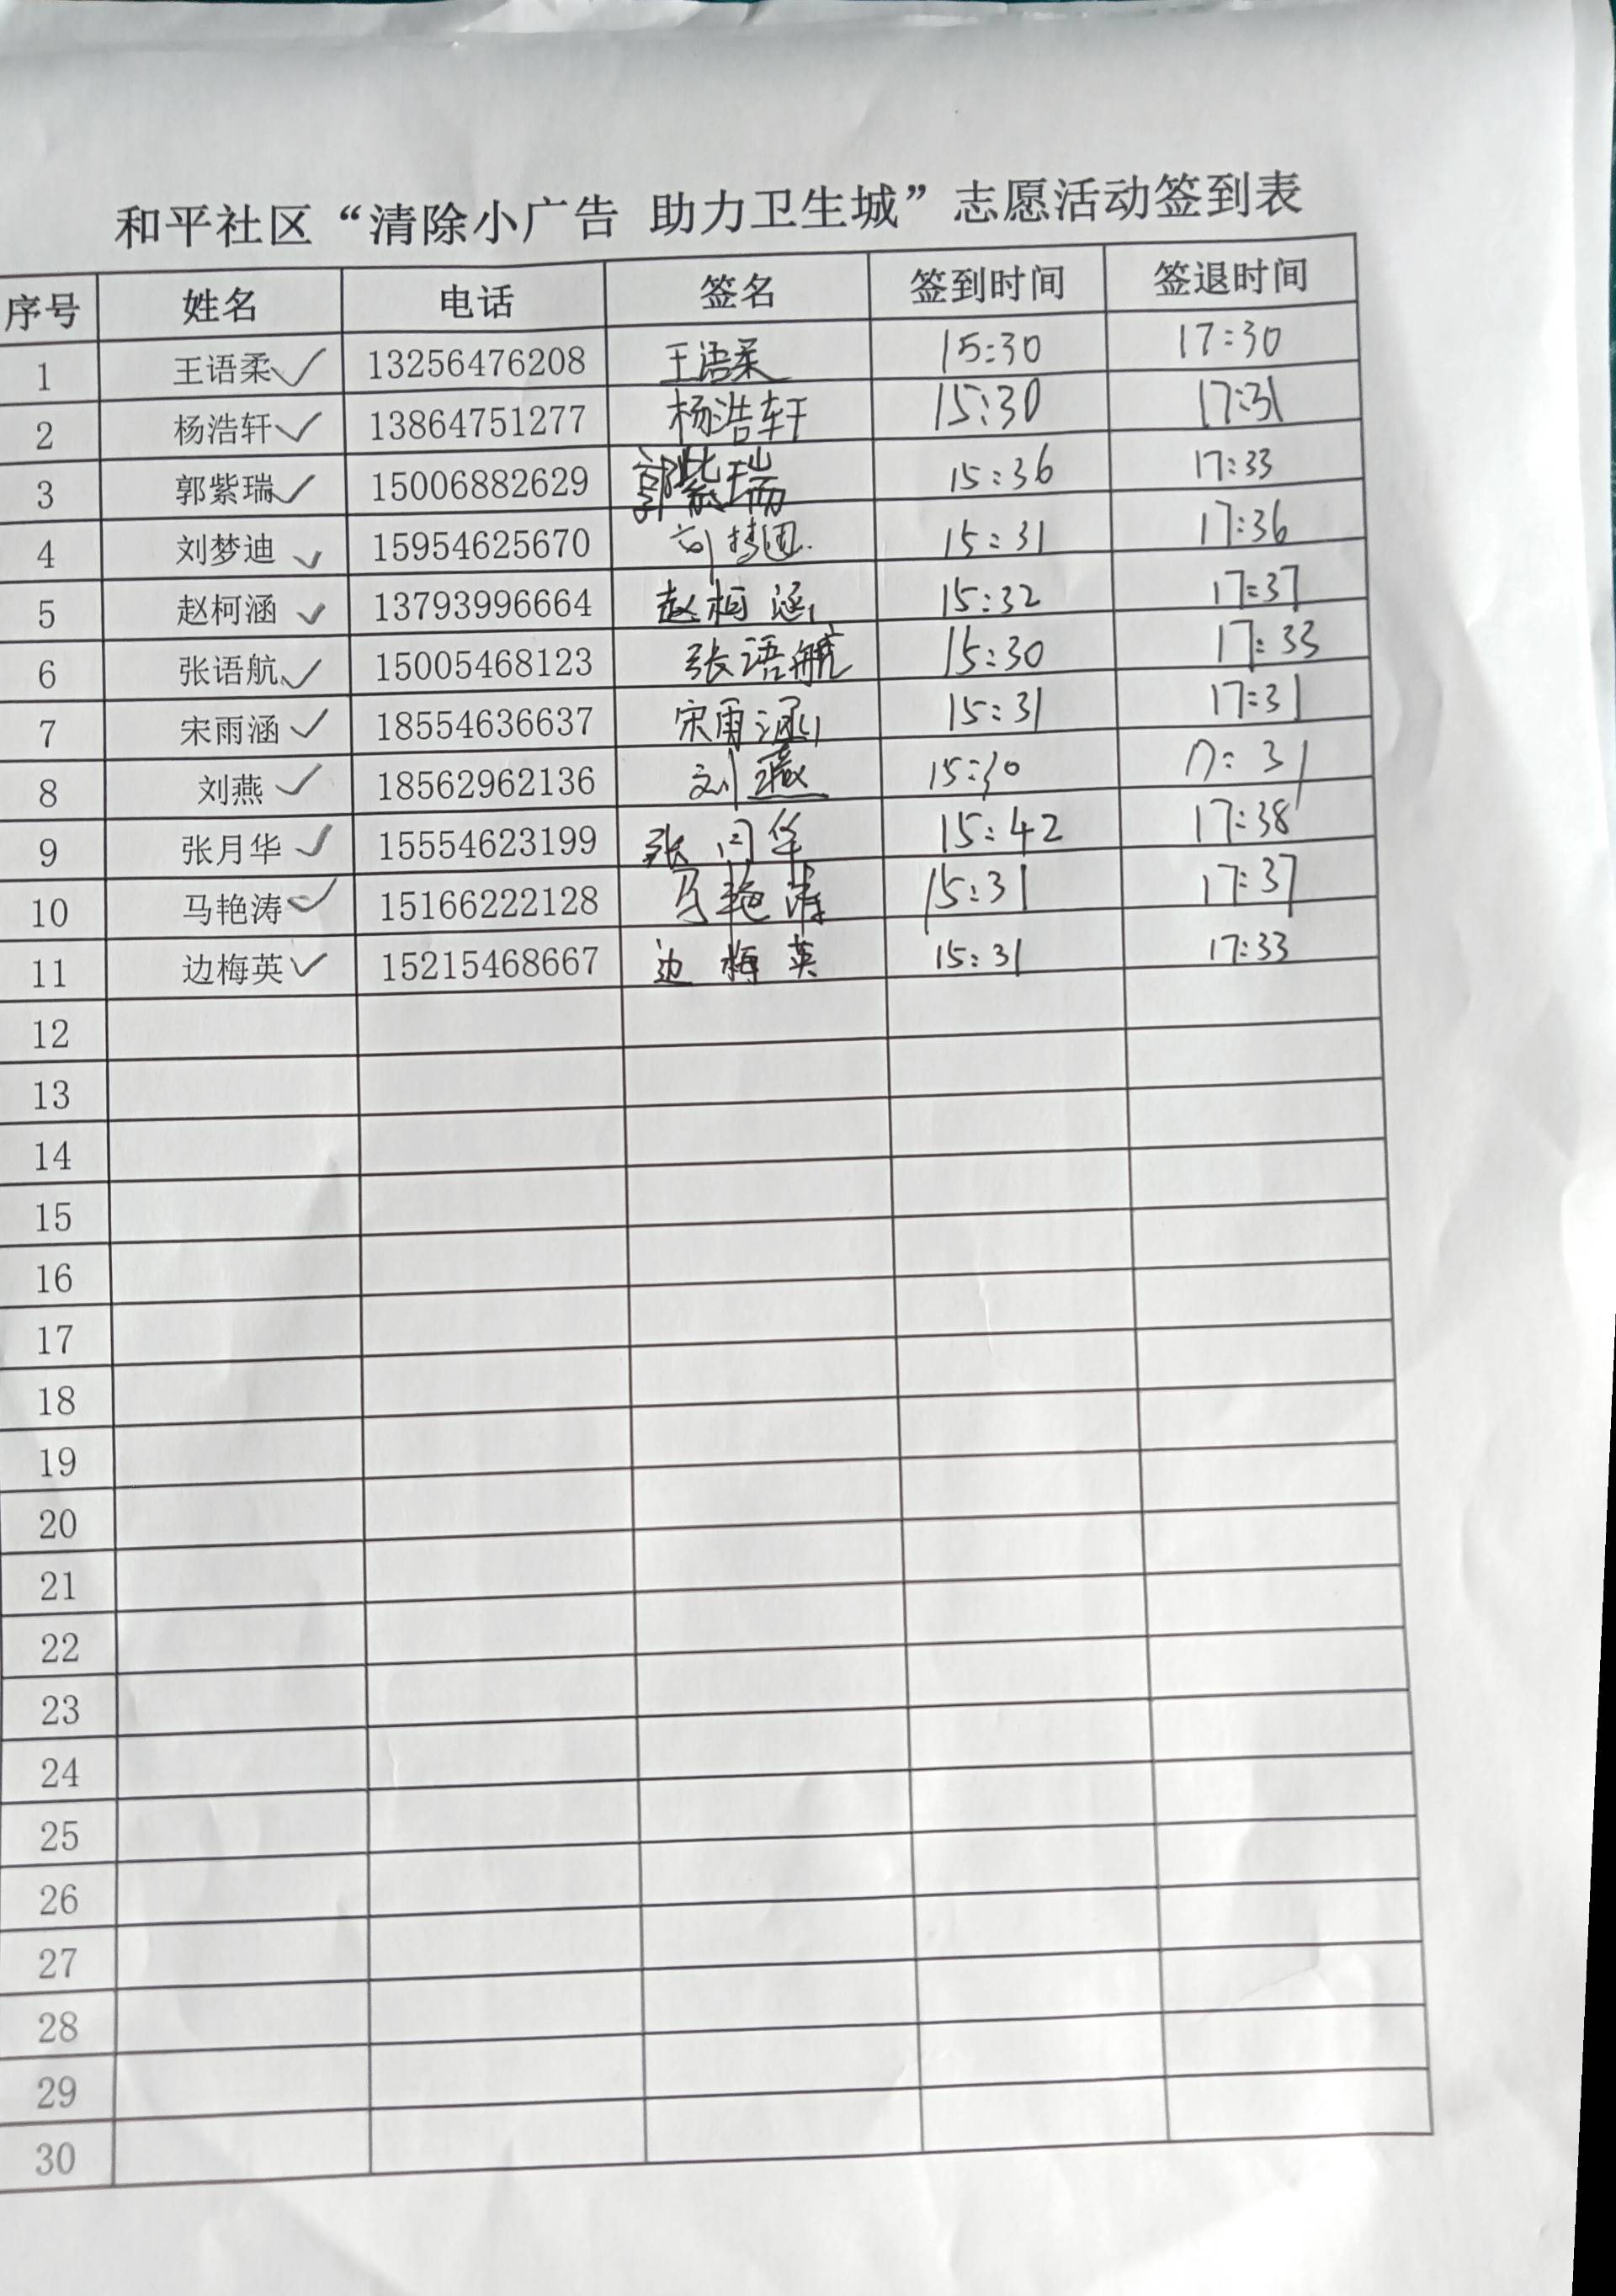 和平社区“清除小广告 助力卫生城”志愿活动签到表
序号 姓名 电话 签名 签到时间 签退时间
1 王语柔✓ 13256476208 王语柔 15:30 17:30
2 杨浩轩✓ 13864751277 杨浩轩 15:30 17:31
3 郭紫瑞✓ 15006882629 郭紫瑞 15:36 17:33
4 刘梦迪✓ 15954625670 刘梦迪 15:31 17:36
5 赵柯涵✓ 13793996664 赵柯涵 15:32 17:37
6 张语航✓ 15005468123 张语航 15:30 17:33
7 宋雨涵✓ 18554636637 宋雨涵 15:31 17:31
8 刘燕✓ 18562962136 刘燕 15:30 17:31
9 张月华✓ 15554623199 张月华 15:42 17:38
10 马艳涛✓ 15166222128 马艳涛 15:31 17:37
11 边梅英✓ 15215468667 边梅英 15:31 17:33
12
13
14
15
16
17
18
19
20
21
22
23
24
25
26
27
28
29
30